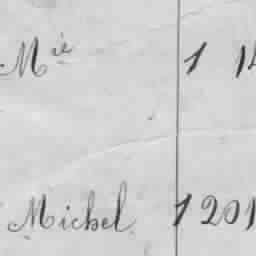 Mie 1 14
Michel 1 201